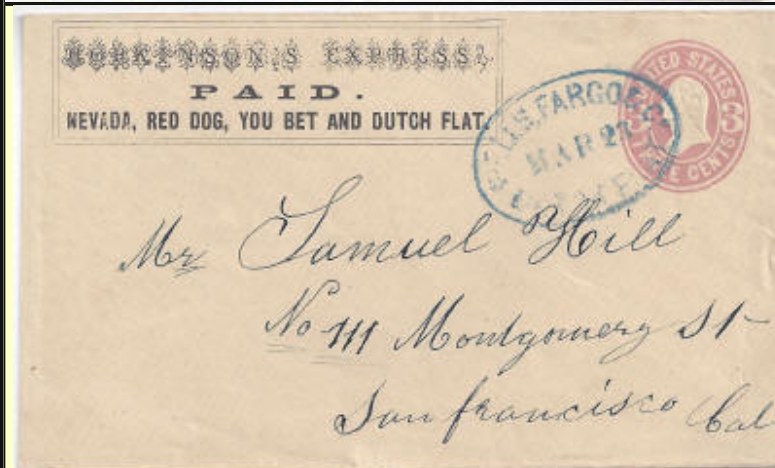 HOSKINSON'S EXPRESS,
PAID.
NEVADA, RED DOG, YOU BET AND DUTCH FLAT.
WELLS, FARGO & Co
MAR 27
UNITED STATES
3 3
THREE CENTS
Mr Samuel Hill
No 111 Montgomery St
San francisco Cal